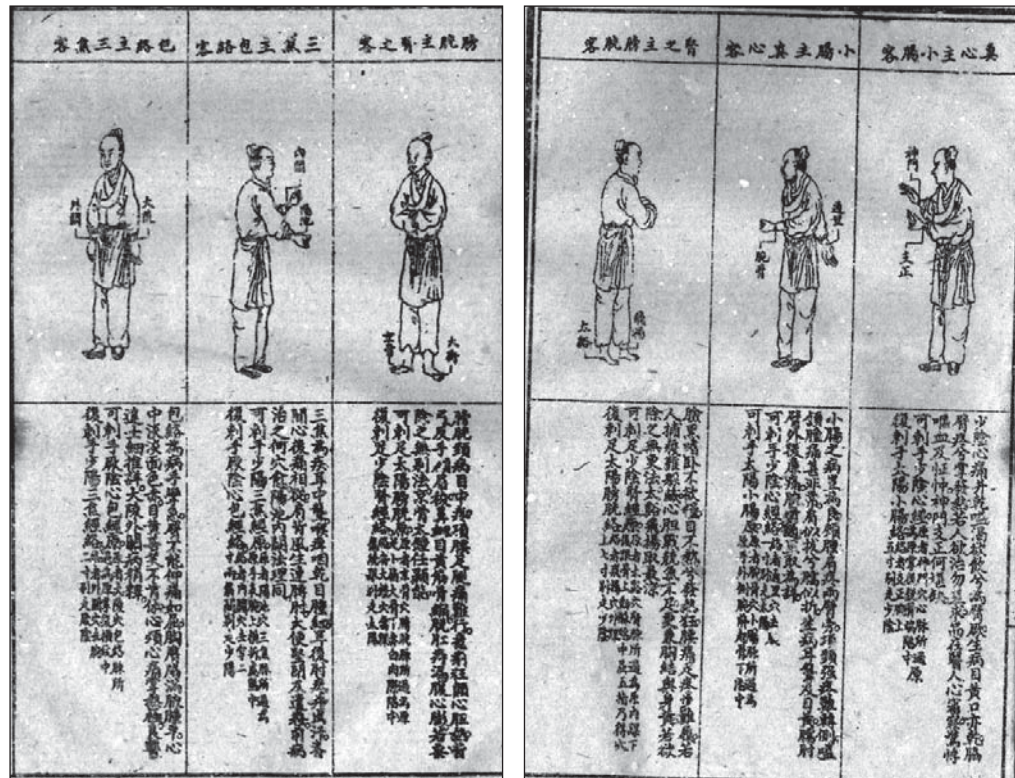 真心主小腸客
神門
支正
少陰心痛并乾嗌渴欲飲兮為臂厥生病目黃口亦乾脇
臂疼兮掌發熱若人欲治勿差求專在醫人心審察驚悸
嘔血及怔忡神門支正何堪缺
可刺手少陰心經原
復刺手太陽小腸絡
小腸主真心客
通里
腕骨
小腸之病豈為良頰腫肩疼兩臂旁項頸強疼難轉側嗌
頷腫痛甚非常肩似拔兮臑似折生病耳聾及目黃臑肘
臂外後廉痛腕骨通里取為詳
可刺手太陽小腸原
腎之主膀胱客
飛揚
太谿
臉黑嗜臥不欲糧目不明兮發熱狂腰痛足疼步難履若
人捕獲難躲藏心膽戰兢氣不足更兼胸結與身黃若欲
除之無更法太谿飛揚取最良
可刺足少陰腎經原
復刺足太陽膀胱絡
膀胱主腎之客
大鍾
京骨
膀胱頸病目中疼項腰足腿痛難行痢瘧狂癲心膽熱背
弓反手額眉稜鼻衄目黃筋骨縮脫肛痔漏腹心膨若要
除之無別法京骨大鍾任顯能
可刺足太陽膀胱原
復刺足少陰腎經絡
三焦主包絡客
內關
陽池
三焦為病耳中聾喉痺咽乾目腫紅耳後肘疼并出汗脊
間心後痛相從肩背風生連膊肘大便堅閉及遺癃前病
治之何穴愈陽池內關法理同
可刺手少陽三焦經原
復刺手厥陰心包經絡
包絡主三焦客
大陵
外關
包絡為病手攣急臂不能伸痛如屈胸膺脇滿腋腫平心
中淡淡面色赤目黃善笑不肯休心煩心痛掌熱極良醫
達士細推詳大陵外關病消釋
可刺手厥陰心包經原
復刺手少陽三焦經絡